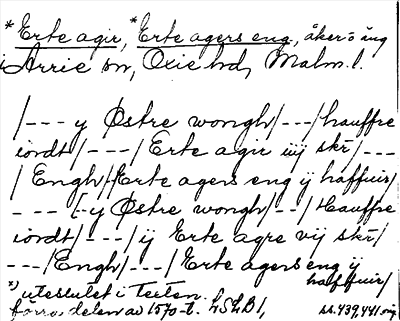 *Erte agir, *Erte agers eng, åker o äng
i Arrie sn, Oxie hd, Malm. l.
/--- y Østre wongh/--/hauffre
iordt/---/Erte agir iiij skr/---
/Engh/-/Erte agers eng ij haffuir/
--- [-y Østre wongh/--/Hauffre
iordt/---/ij Erte agre vij skr/
---/Engh/---/Erte agers eng ij
haffuir/
*) uteslutet i texten.
förra delen av 1570-t. LSLB1, ss. 439, 441, orig